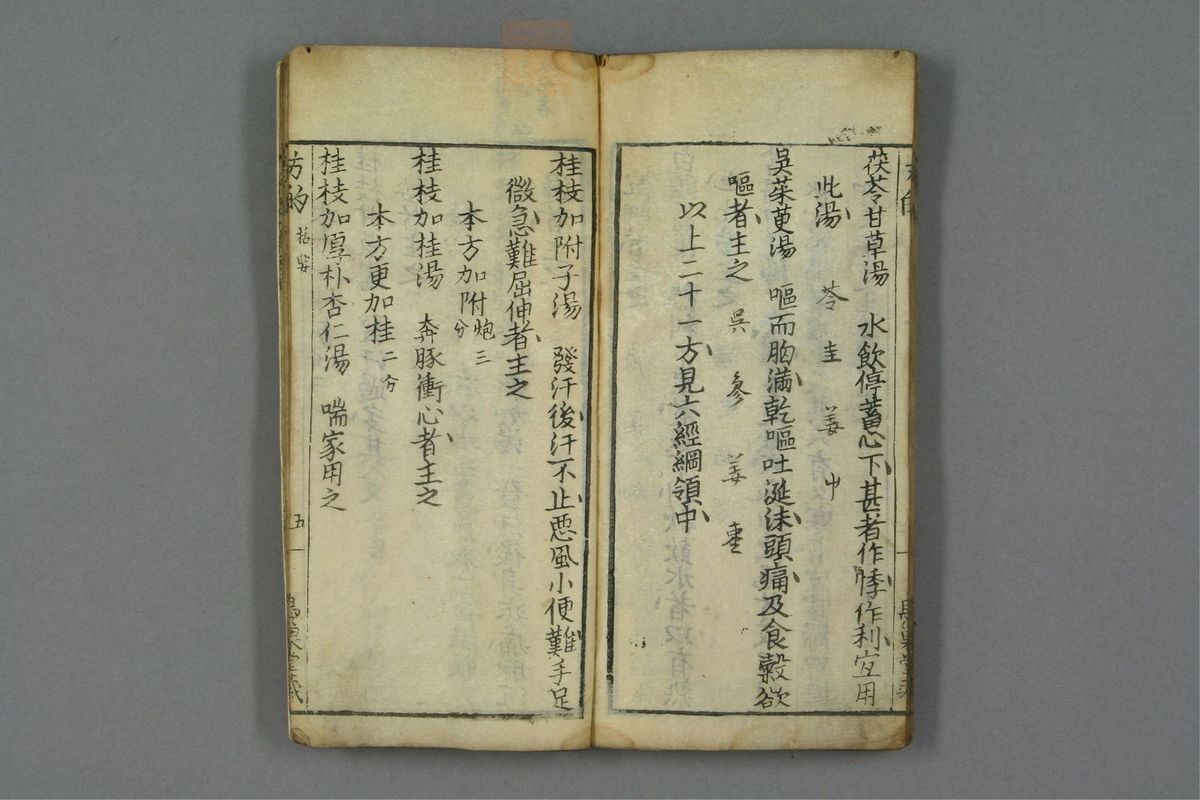 茯苓甘草湯　水飲停蓄心下甚者作悸作利宜用
此湯　苓　圭　姜　中
吳茱萸湯　嘔而胸滿乾嘔吐涎沫頭痛及食穀欲
嘔者主之　吳　參　姜　棗
以上二十一方見六經綱領中
桂枝加附子湯　發汗後汗不止惡風小便難手足
微急難屈伸者主之
本方加附炮三分
桂枝加桂湯　奔豚衝心者主之
本方更加桂二分
桂枝加厚朴杏仁湯　喘家用之
方的
五